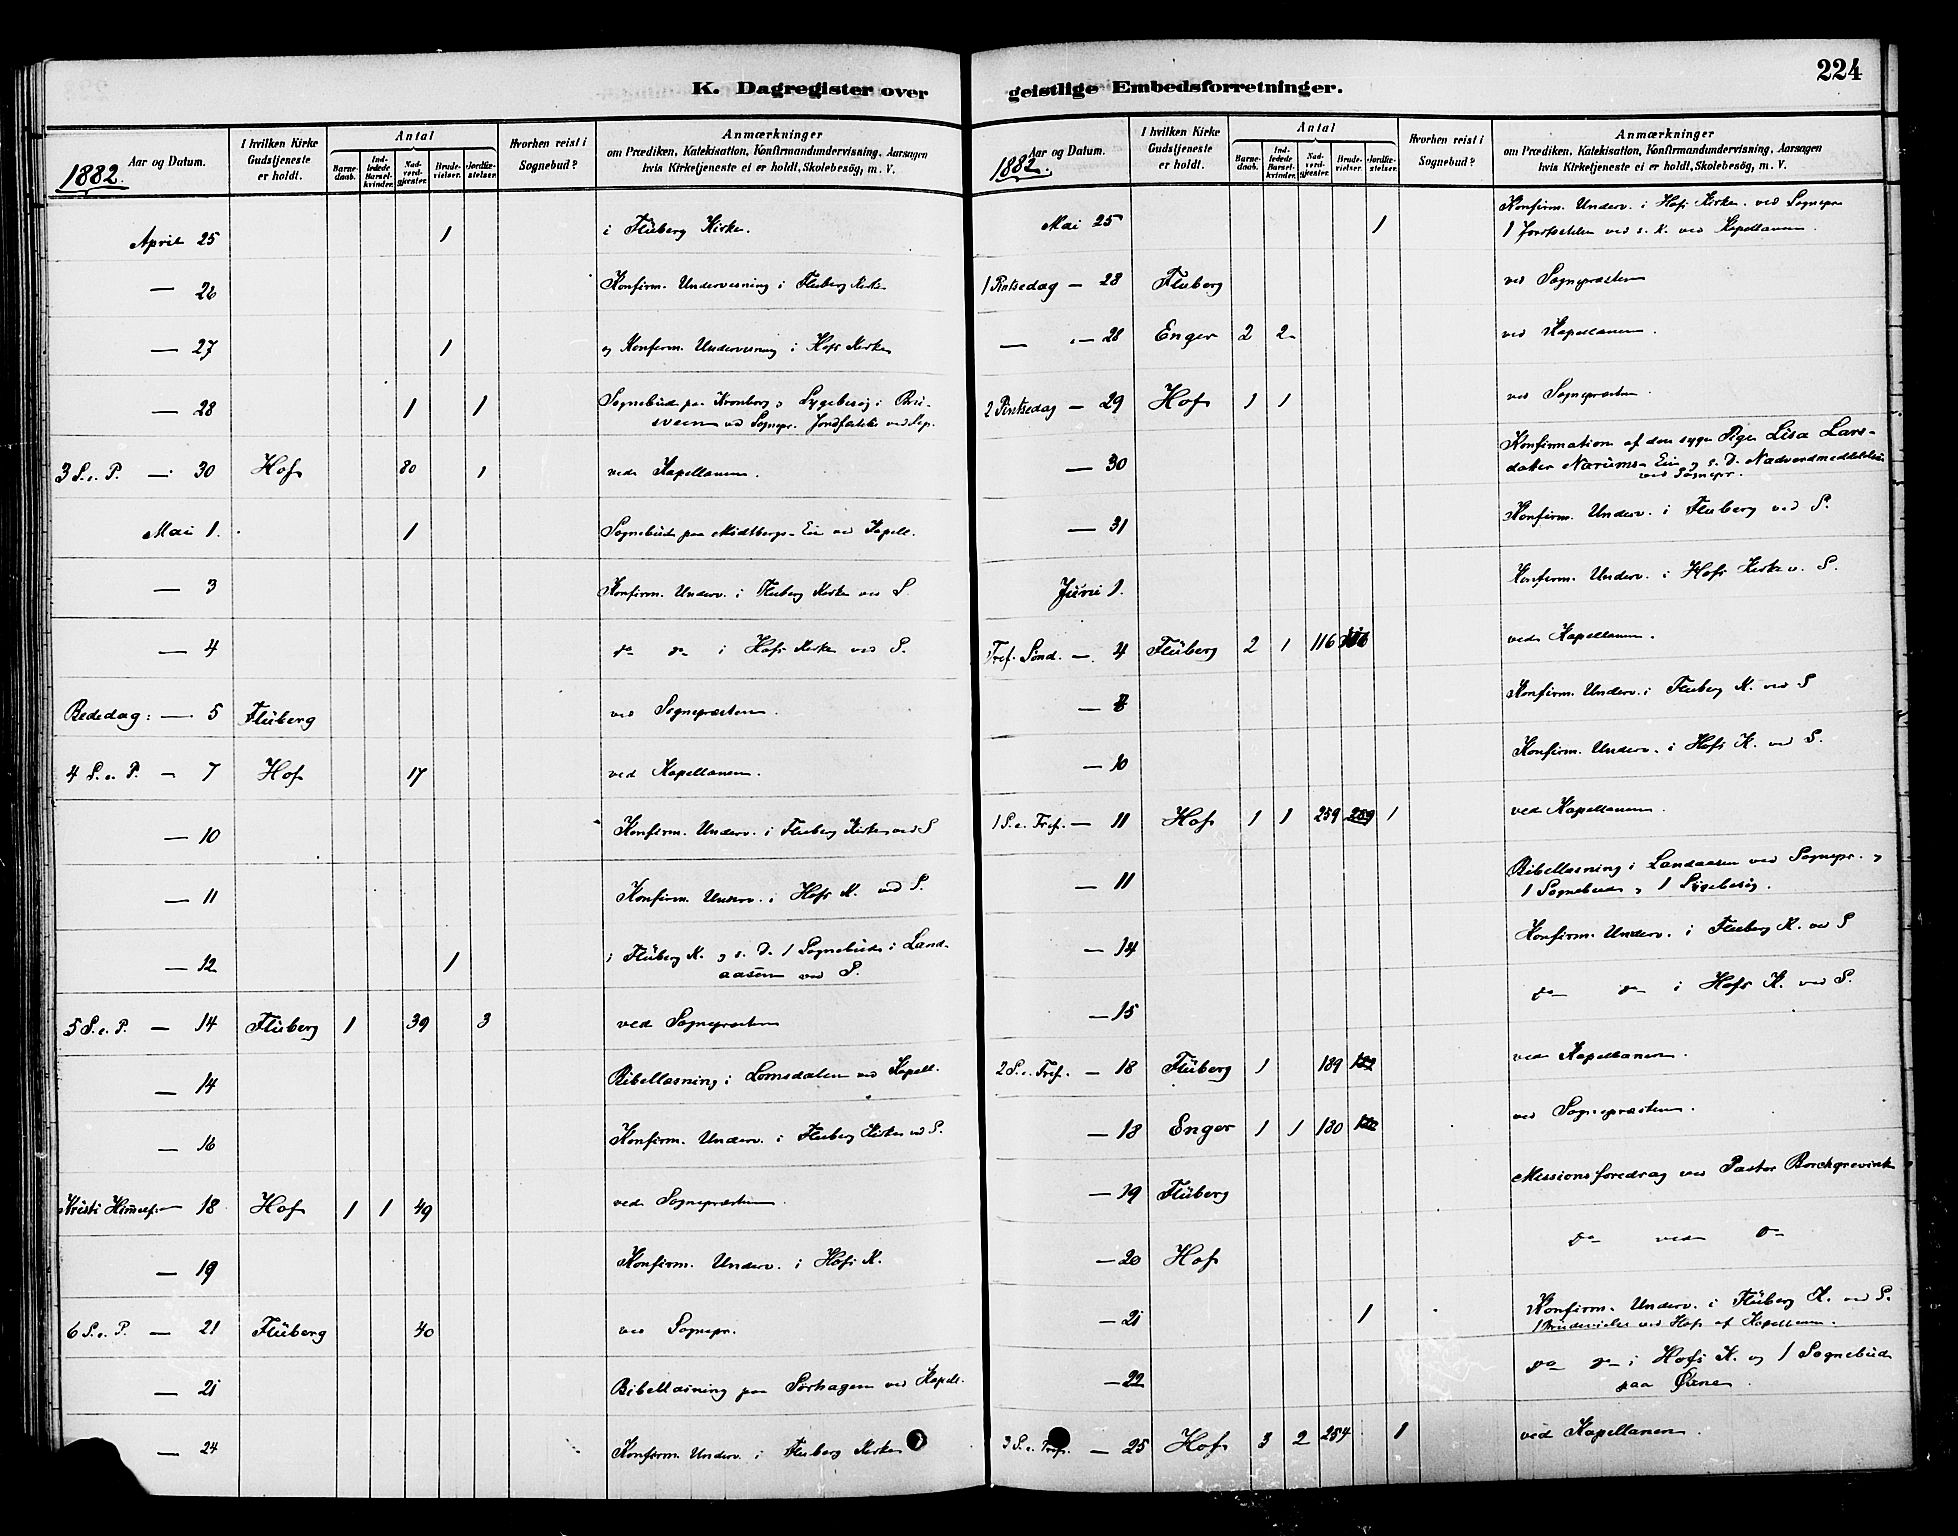 K. Dagregister over
1882.
Aar og Datum.
I hvilken Kirke Gudstjeneste er holdt.
Antal
Barnedaab.
Indledede Barselkvinder.
Nadverdgjester.
Brudevielser.
Jordfæstelser.
Hvorhen reist i Sognebud?
Anmærkninger
om Prædiken, Katekisation, Konfirmandundervisning, Aarsagen
hvis Kirketjeneste ei er holdt, Skolebesög, m. V.
April 25 1 i Fluberg Kirke.
— 26 Konfirm. Undervisning i Fluberg Kirke
— 27 1 og Konfirm. Undervisning i Hofs Kirke
— 28 1 1 Sognebud paa Kronborg Sygebesög i
sveen ved Sognepr.
3 S. e. P. — 30 Hof 80 1 ved Kapellanen.
Mai 1. 1 Sognebud paa Midtbergs-Eie ved Kapell.
— 3 Konfirm. Underv. i Fluberg Kirke ved S.
— 4 do do i Hofs Kirke ved S.
Bededag: — 5 Fluberg ved Sognepræsten.
4 S. e. P. — 7 Hof 17 ved Kapellanen.
— 10 Konfirm. Underv. i Fluberg Kirke ved S
— 11 Konfirm. Underv. i Hofs K. ved S.
— 12 1 i Fluberg K. og s. D. 1 Sognebud i Land-
aasen ved S.
5 S. e. P. — 14 Fluberg 1 39 3 ved Sognepræsten
— 14 Bibellæsning i Lomsdalen ved Kapell.
— 16 Konfirm. Underv. i Fluberg Kirke ved S.
Kristi Himmelf. — 18 Hof 1 1 49 ved Sognepræsten.
— 19 Konfirm. Underv. i Hofs K.
6 S. e. P. — 21 Fluberg 40 ved Sognepr.
— 21 Bibellæsning paa Sörhagen ved Kapell.
— 24 Konfirm. Underv. i Fluberg Kirke
geistlige Embedsforretninger.
224
1882.
Aar og Datum.
I hvilken Kirke Gudstjeneste er holdt.
Antal
Barnedaab.
Indledede Barselkvinder.
Nadverdgjester.
Brudevielser.
Jordfæstelser.
Hvorhen reist i Sognebud?
Anmærkninger
om Prædiken, Katekisation, Konfirmandundervisning, Aarsagen
hvis Kirketjeneste ei er holdt, Skolebesög, m. V.
Mai 25 1 Konfirm. Underv. i Hofs Kirke ved Sognepr
1 ved Kapellanen.
1 Pintsedag — 28 Fluberg ved Sognepræsten
— — 28 Enger 2 2 ved Kapellanen.
2 Pintsedag — 29 Hof 1 1 ved Sognepræsten.
— 30 Konfirmation af den syge Pige Lisa Lars-
datter Narums-Eie og s. D. Nadverdmeddelelse
ved Sognepr.
— 31 Konfirm. Underv. i Fluberg ved S.
Juni 1. Konfirm. Underv. i Hofs Kirke v. S.
Tref. Sönd. — 4 Fluberg 2 1 116 ved Kapellanen.
— 8 Konfirm. Underv. i Fluberg K. ved S
— 10 Konfirm. Underv. i Hofs K. ved S.
1 S. e. Tref. — 11 Hof 1 1 259 259 1 ved Kapellanen.
— 11 Bibellæsning i Landaasen ved Sognepr. og
1 Sognebud og 1 Sygebesög.
— 14 Konfirm. Underv. i Fluberg K. ved S
— 15 do do i Hofs K. ved S.
2 S. e. Tref. — 18 Fluberg 1 189 ved Kapellanen.
— 18 Enger 1 1 130 ved Sognepræsten.
— 19 Fluberg Missionsforedrag ved Pastor Borchgrevink
— 20 Hof do ved do
— 21 1 Konfirm. Underv. i Fluberg K. ved S.
1 Brudevielse ved Hof af Kapellanen.
— 22 do do i Hofs K. og 1 Sognebud
paa Öxne.
3 S. e. Tref. — 25 Hof 3 2 254 1 ved Kapellanen.